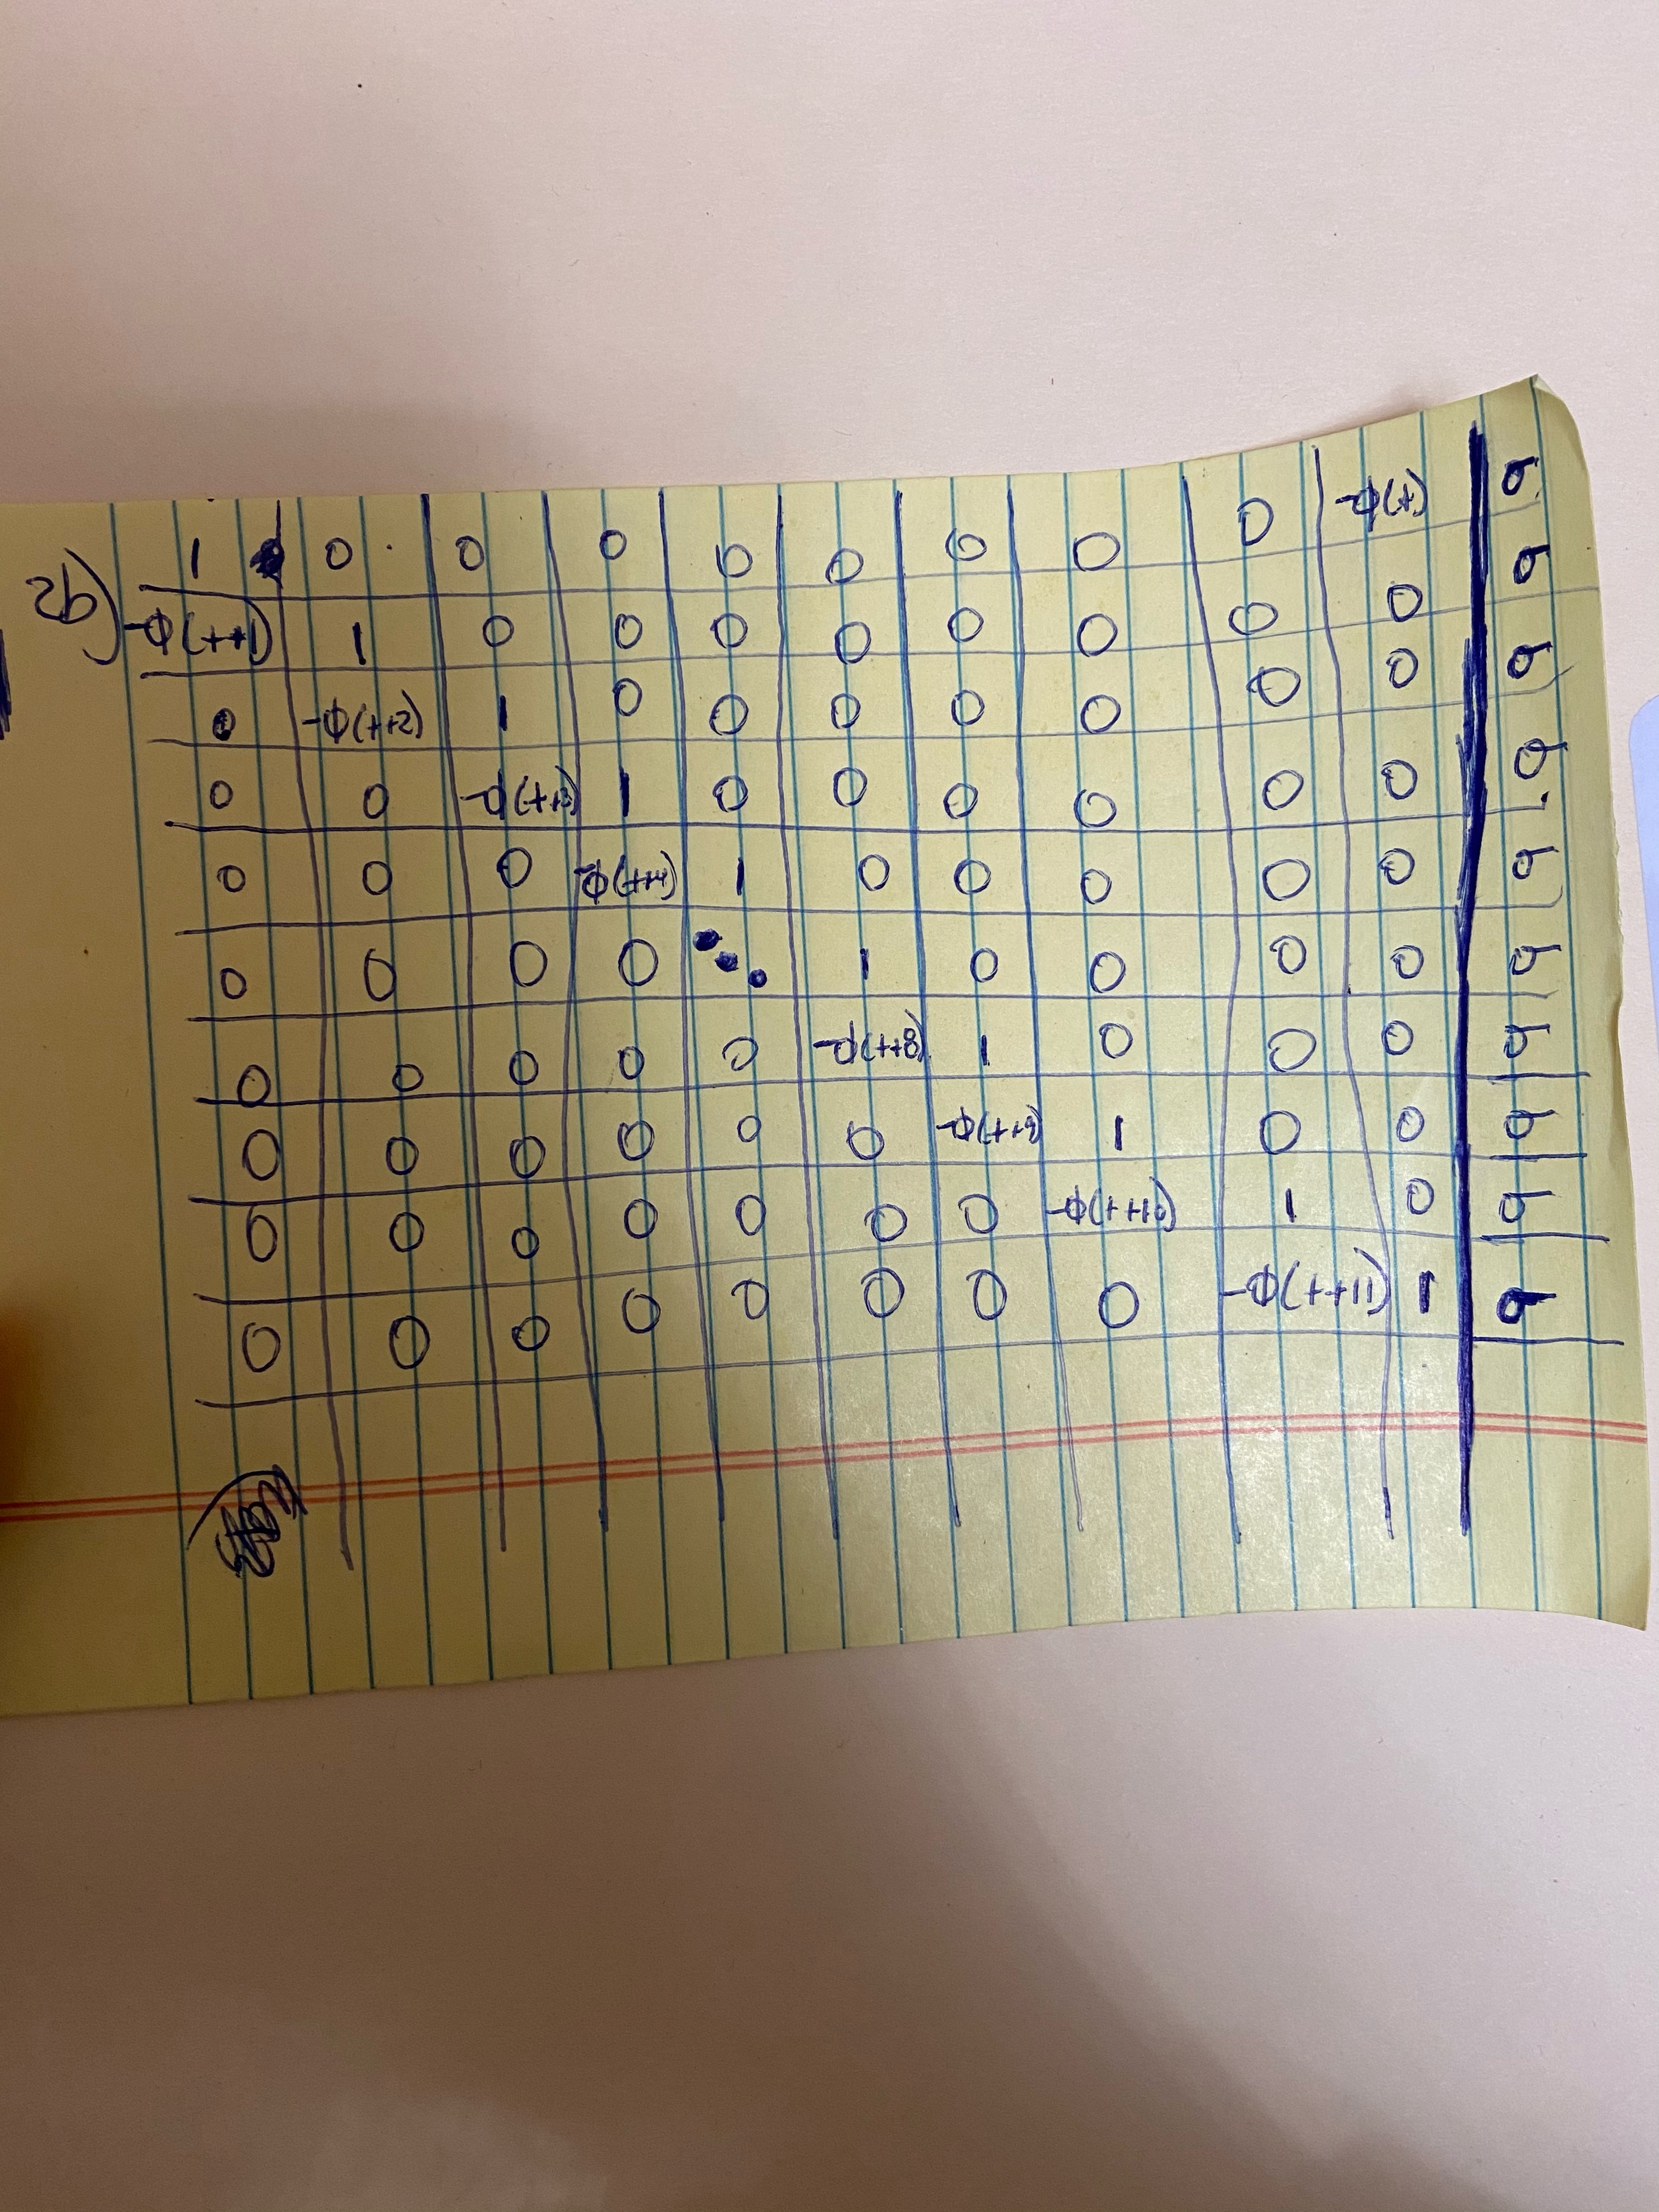 92)
1 0 0 0 0 0 0 0 0 -ϕ(t) 9
-ϕ(t+1) 1 0 0 0 0 0 0 0 0 9
0 -ϕ(t+2) 1 0 0 0 0 0 0 0 9
0 0 -ϕ(t+3) 1 0 0 0 0 0 0 9
0 0 0 -ϕ(t+4) 1 0 0 0 0 0 9
0 0 0 0 ⋱ 1 0 0 0 0 9
0 0 0 0 0 -ϕ(t+8) 1 0 0 0 9
0 0 0 0 0 0 -ϕ(t+9) 1 0 0 9
0 0 0 0 0 0 0 -ϕ(t+10) 1 0 9
0 0 0 0 0 0 0 0 -ϕ(t+11) 1 9